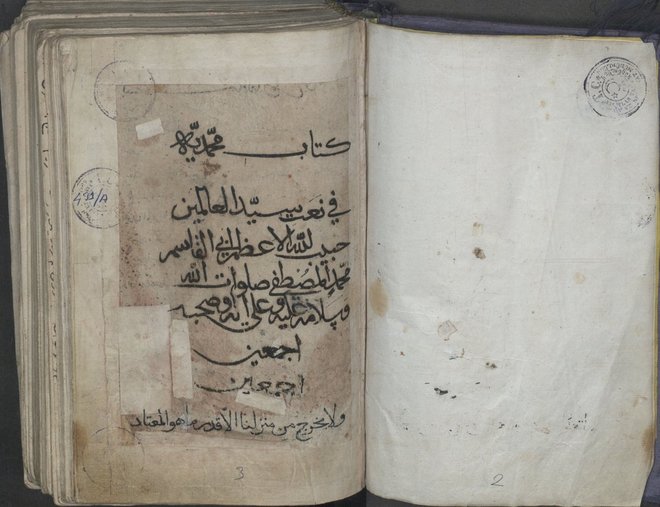 كتاب محمدية
في نعت سيد العالمين
حبيب الله الاعظم ابي القاسم
محمد المصطفى صلوات الله
وسلامه عليه وعلى آله وصحبه
اجمعين
اجمعين
ولا يخرج من منزلنا الا قدر ما هو المعتاد
431/A
3
2